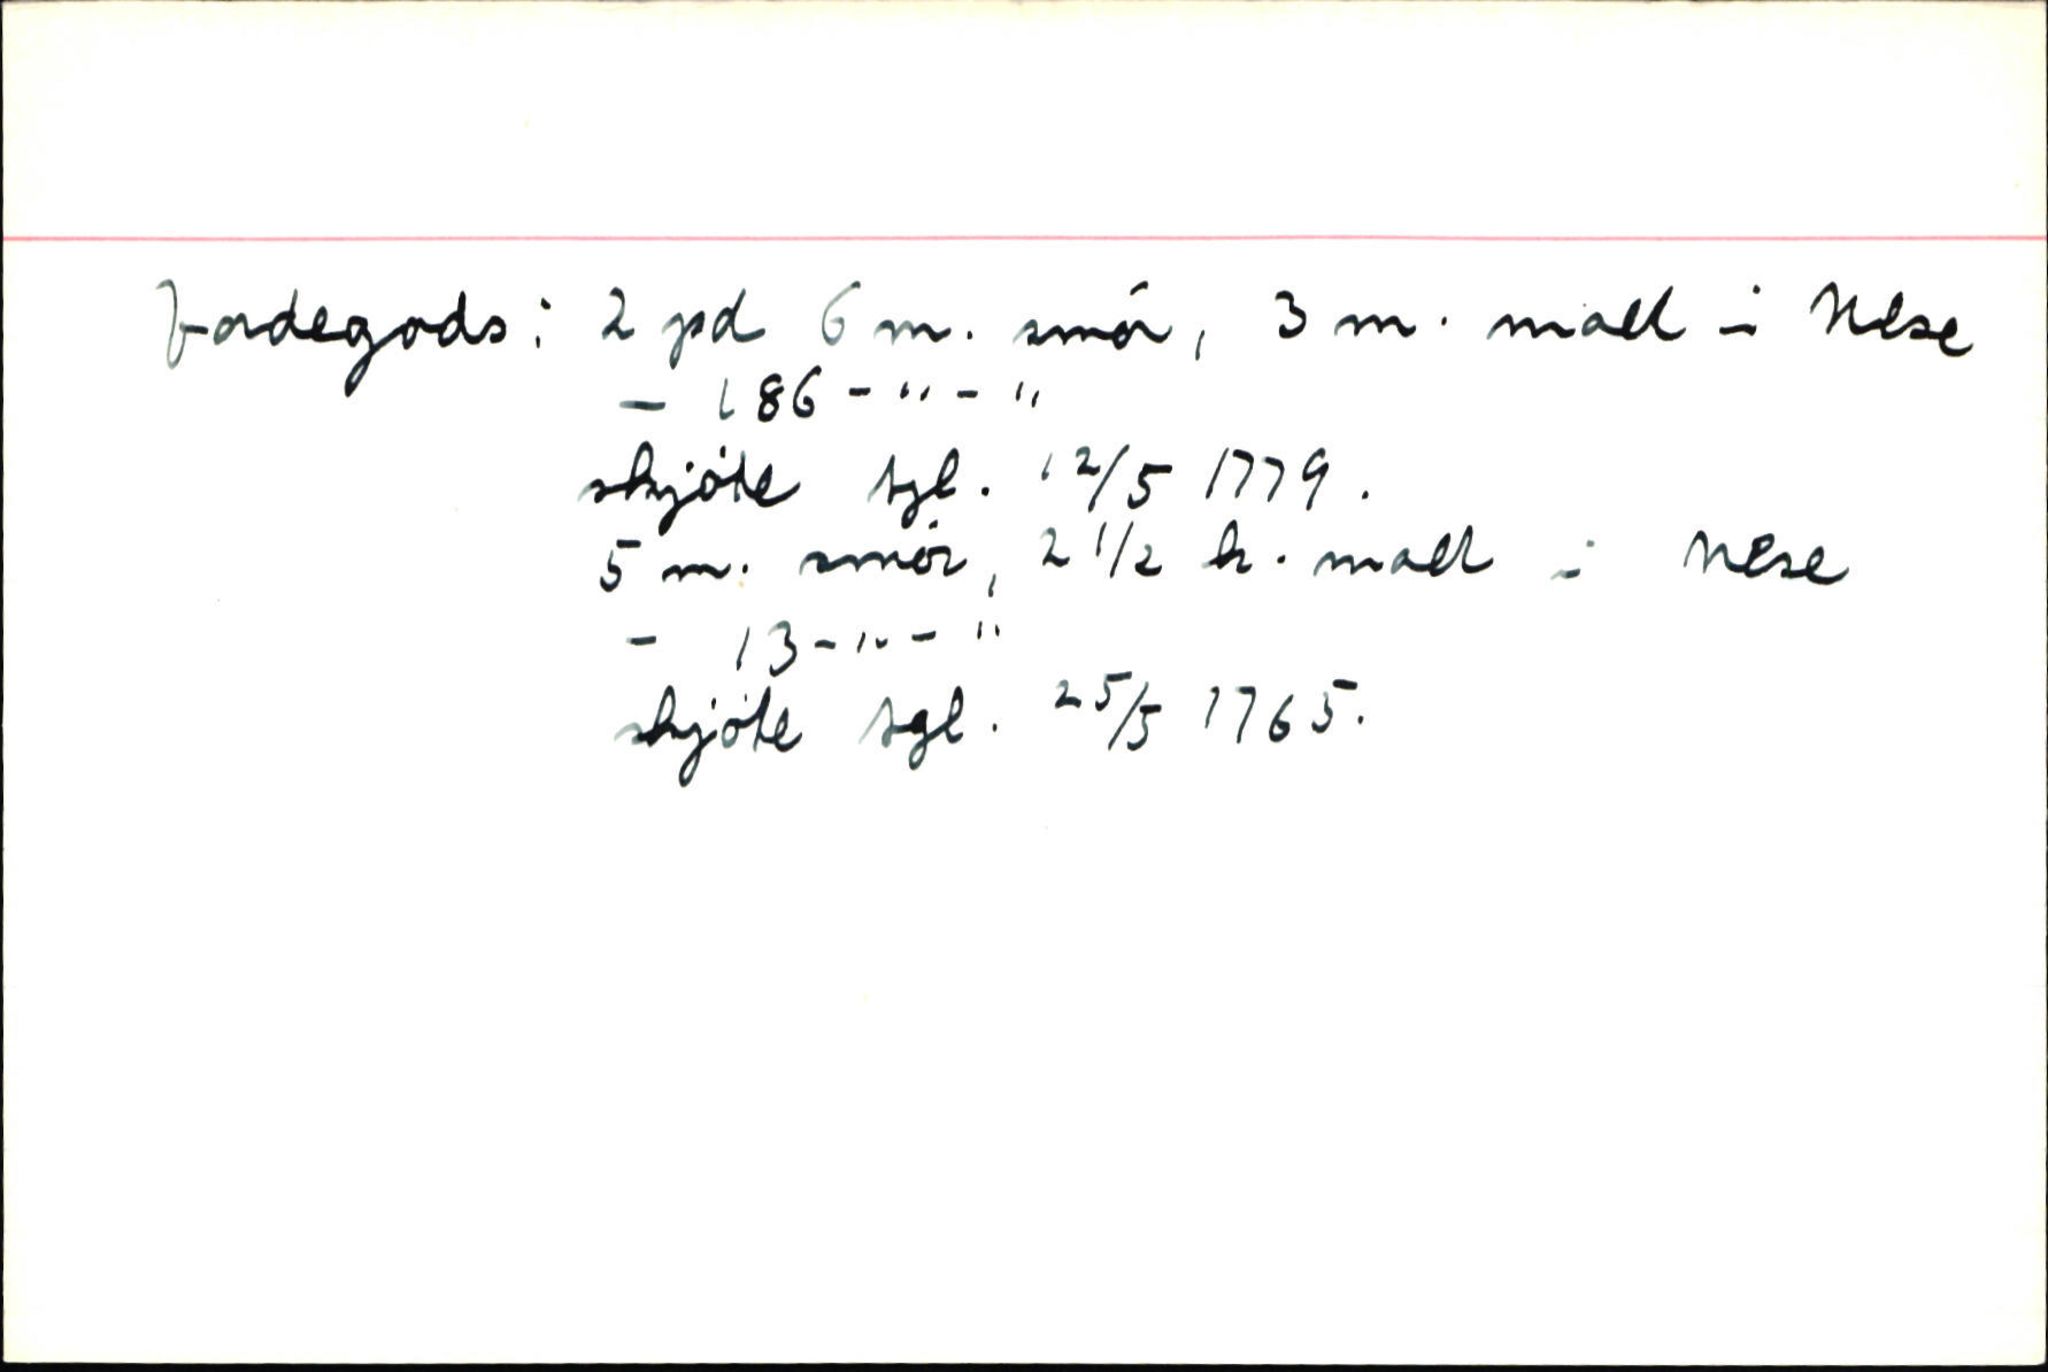 Jordegods: 2 pd 6 m. smör, 3 m. malt i Nese
- 186 - " - "
skjöte tgl. 12/5 1779.
5 m. smör, 2 1/2 k. malt i Nese
- 13 - " - "
skjöte tgl. 25/5 1765.